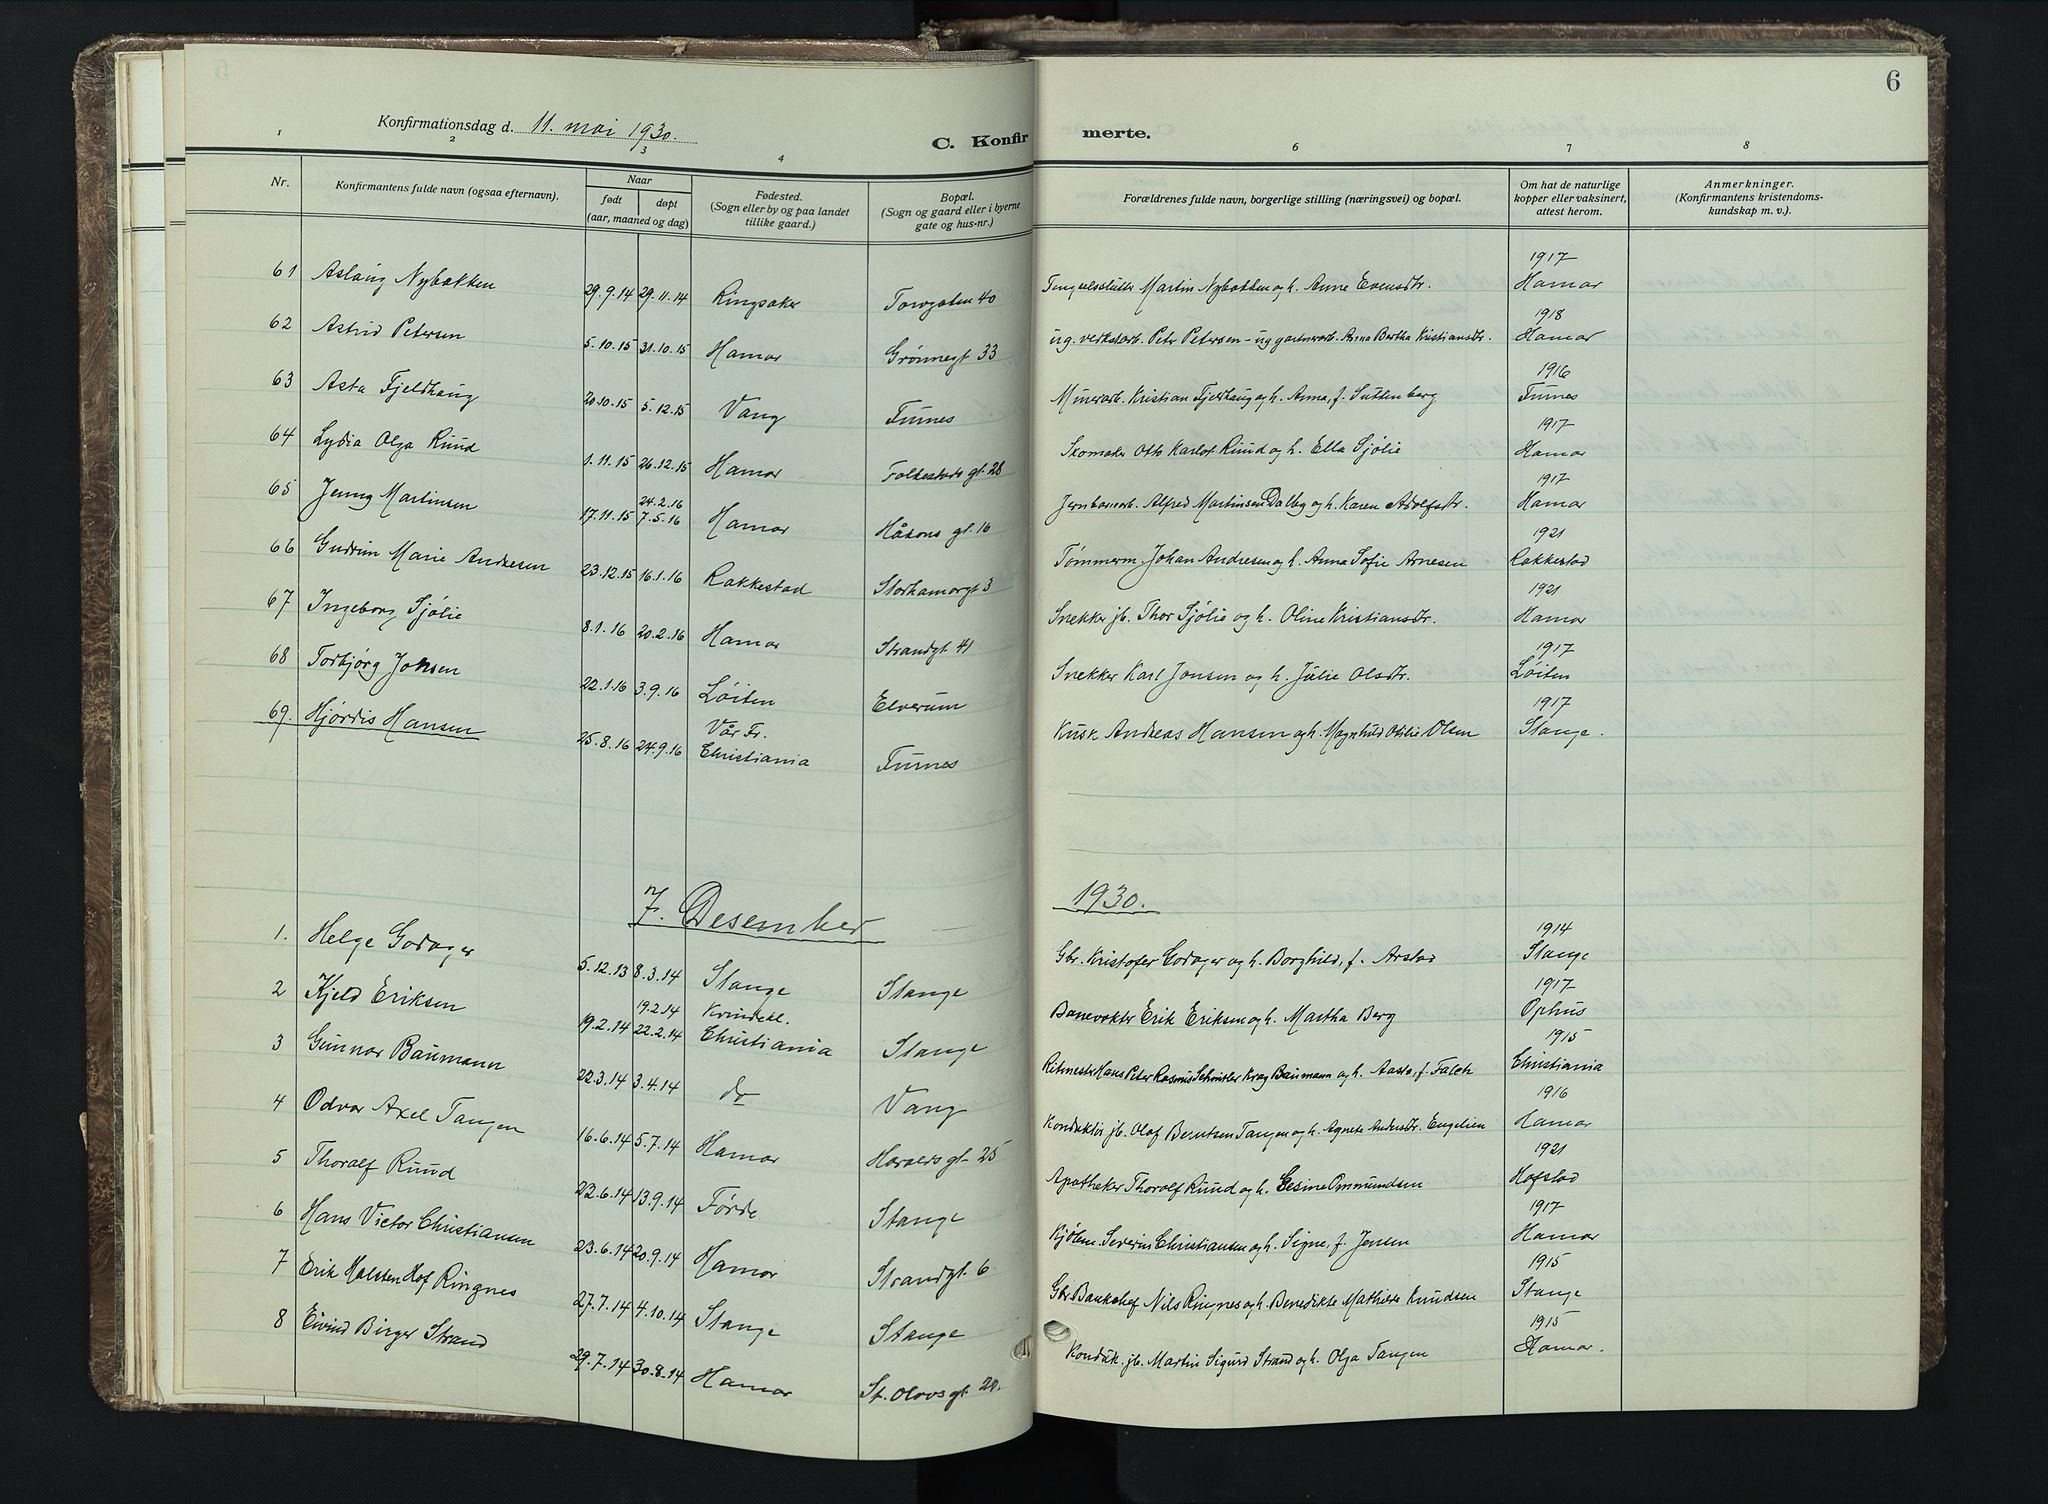 6
Konfirmationsdag d. 11. mai 1930.
C. Konfirmerte.
1 2 3 4 6 7 8
Nr.
Konfirmantens fulde navn (ogsaa efternavn).
Naar
født døpt
(aar, maaned og dag)
Fødested.
(Sogn eller by og paa landet
tillike gaard.)
Bopæl.
(Sogn og gaard eller i byerne
gate og hus-nr.)
Forældrenes fulde navn, borgerlige stilling (næringsvei) og bopæl.
Om hat de naturlige
kopper eller vaksinert,
attest herom.
Anmerkninger.
(Konfirmantens kristendoms-
kundskap m. v.).
61 Aslaug Nybakken 29.9.14 29.11.14 Ringsaker Torvgaten 40 Martin Nybakken og h. Anne Evensdtr. 1917 Hamar
62 Astrid Petersen 5.10.15 31.10.15 Hamar Grønnegt 33 ug. verkstarb. Petr Petersen - ug gartnerarb. Anna Bertha Kristiansdtr. 1918 Hamar
63 Asta Fjeldhaug 20.10.15 5.12.15 Vang Furnes Murerarb. Kristian Fjeldhaug og h. Anna, f. Suttenberg 1916 Furnes
64 Lydia Olga Ruud 1.11.15 26.12.15 Hamar Folkestads gt. 28 Skomaker Otto Karlot Ruud og h. Ella Sjølie 1917 Hamar
65 Jenny Martinsen 17.11.15 24.2.16 7.5.16 Hamar Håkons gt. 16 Jernbanarb. Alfred Martinsen Dalby og h. Karen Adolfsdtr. 1917 Hamar
66 Gudrun Marie Andresen 23.12.15 16.1.16 Rakkestad Storhamargt 3 Tømmerm. Johan Andresen og h. Anna Sofie Arnesen 1921 Rakkestad
67 Ingeborg Sjølie 8.1.16 20.2.16 Hamar Strandgt. 41 Snekker jb. Thor Sjølie og h. Oline Kristiansdtr. 1921 Hamar
68 Torbjørg Jonsen 22.1.16 3.9.16 Løiten Elverum Snekker Karl Jonsen og h. Julie Olsdtr. 1917 Løiten
69. Hjørdis Hansen 25.8.16 24.9.16 Vår Fr. Christiania Furnes Kusk Andreas Hansen og h. Magnhild Otilie Olsen 1917 Stange.
7. Desember 1930.
1. Helge Godager 5.12.13 8.3.14 Stange Stange Gbr. Kristofer Godager og h. Borghild, f. Arstad 1914 Stange
2 Kjeld Eriksen 19.2.14 19.2.14 22.2.14 Kvindekl. Christiania Stange Banevokter Erik Eriksen og h. Martha Berg 1917 Ophus
3 Gunnar Baumann 22.3.14 3.4.14 do Vang Ritmester Hans Peter Rasmus Schnitler Krag Baumann og h. Aasta, f. Falch 1915 Christiania
4 Odvar Axel Tangen 16.6.14 5.7.14 Hamar Haralds gt. 25 Konduktør jb. Olaf Berntsen Tangen og h. Agnete Andersdtr. Engelien 1916 Hamar
5 Thoralf Ruud 22.6.14 13.9.14 Førde Stange Apotheker Thoralf Ruud og h. Gesine Ommundsen 1921 Hafstad
6 Hans Victor Christiansen 23.6.14 20.9.14 Hamar Strandgt. 6 Kjøbm. Severin Christiansen og h. Signe, f. Jensen 1917 Hamar
7 Erik Halsten Hof Ringnes 27.7.14 4.10.14 Stange Stange Gbr. Bankchef Nils Ringnes og h. Benedikte Mathilde Knudsen 1915 Stange
8 Eivind Birger Strand 29.7.14 30.8.14 Hamar St. Olavs gt. 20. Konduk. jb. Martin Sigurd Strand og h. Olga Tangen 1915 Hamar.